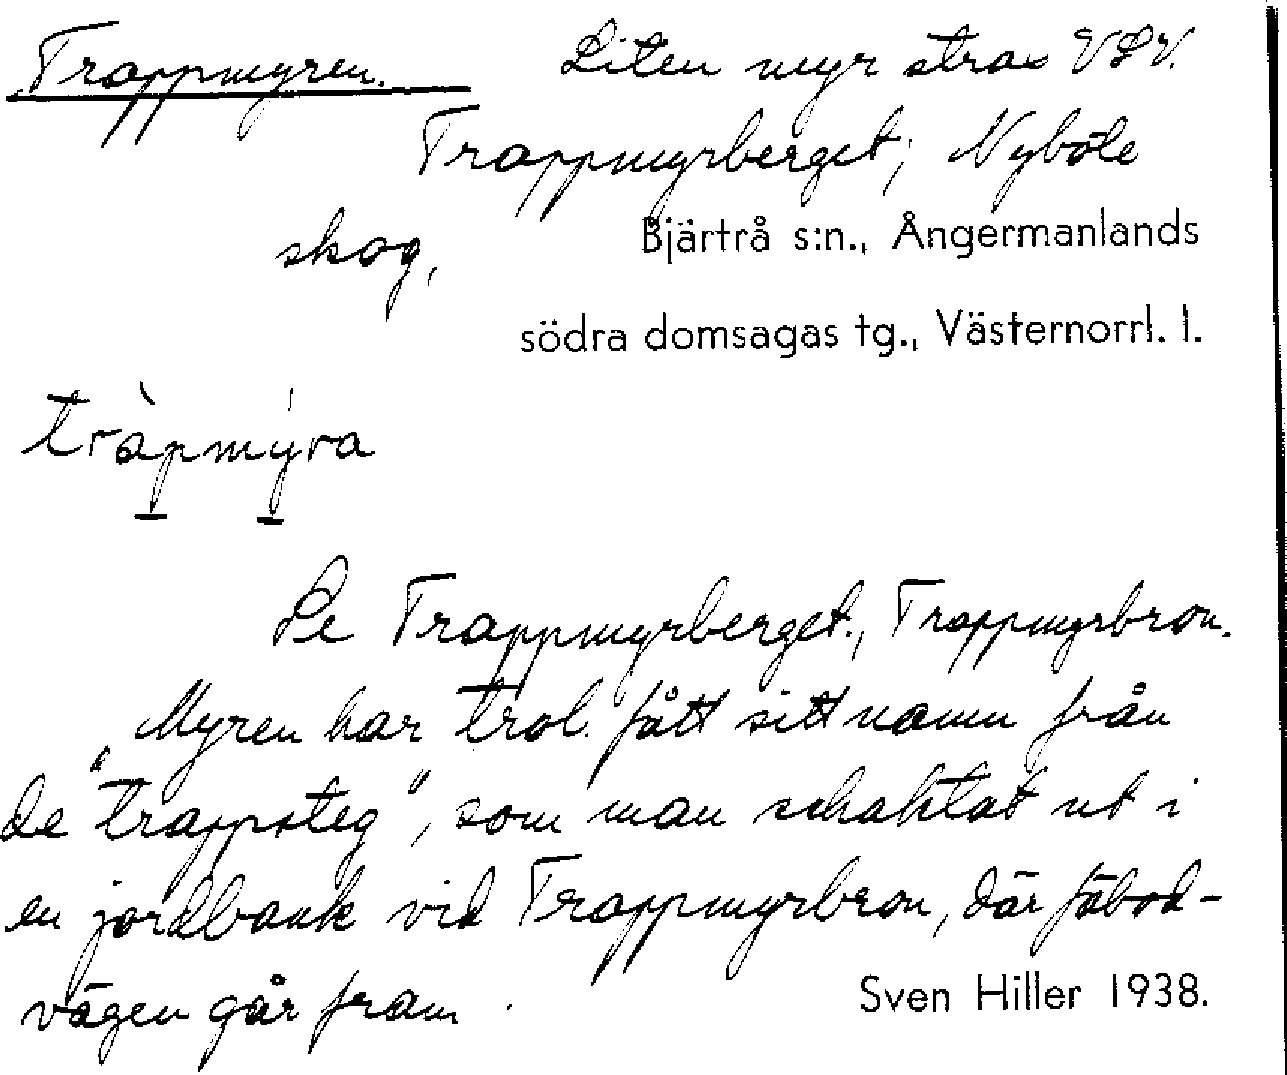 Trappmyren. Liten myr strax VSV.
Trappmyrberget; Nyböle
skog, Bjärtrå s:n., Ångermanlands
södra domsagas tg., Västernorrl. l.
tràpmýra
Se Trappmyrberget., Trappmyrbron.
Myren har trol. fått sitt namn från
de "trappsteg", som man schaktat ut i
en jordbank vid Trappmyrbron, där fäbod-
vägen går fram.
Sven Hiller 1938.